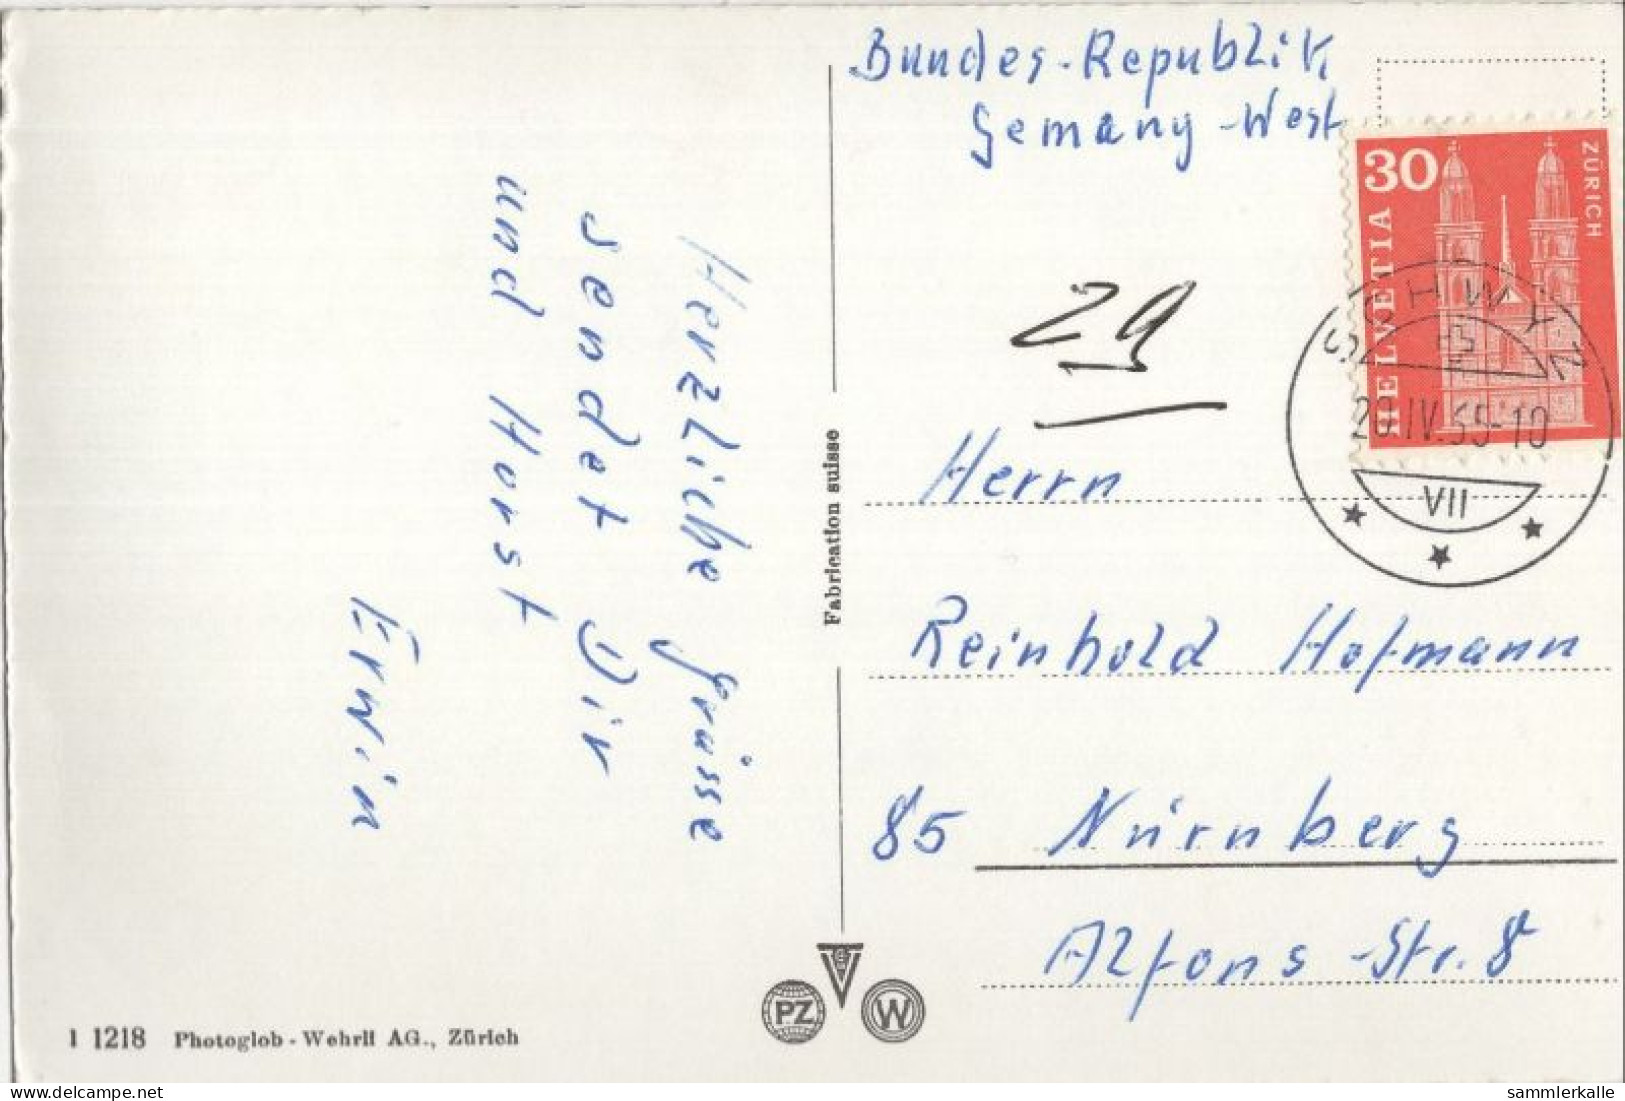 Herzliche Grüsse
sendet Dir
und Horst
Erwin
Fabrication suisse
PZ
W
1 1218 Photoglob - Wehrli AG., Zürich
Bundes-Republik
Gemany-West
30
HELVETIA
ZÜRICH
SCHWYZ
20.IV.65-10
VII
29
Herrn
Reinhold Hofmann
85 Nürnberg
Alfons-Str. 8
delcampe.net
sammlerkalle